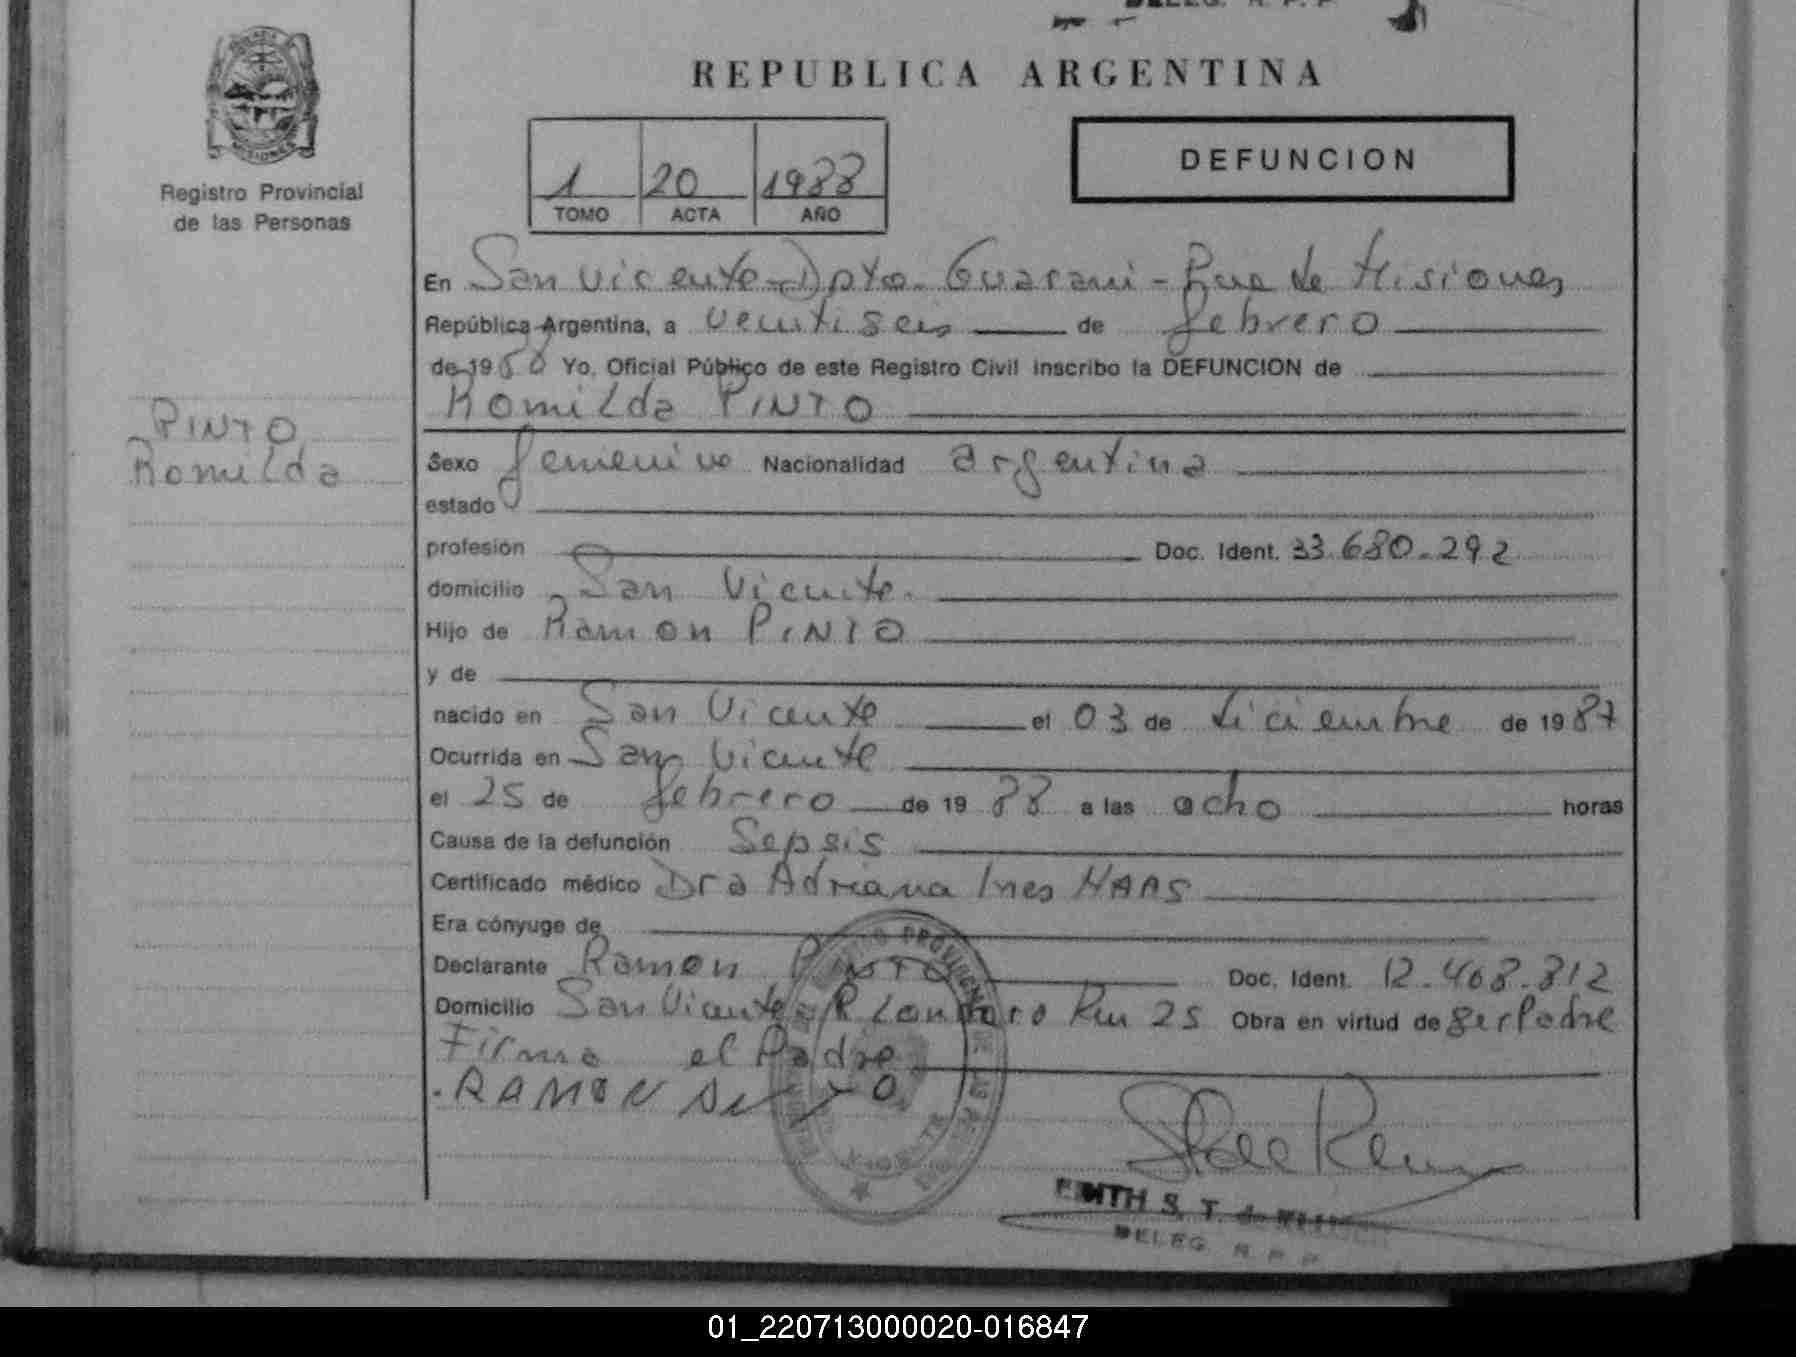 DELEG. R. P. P
REPUBLICA ARGENTINA
MISIONES
Registro Provincial
de las Personas
1 20 1988
TOMO ACTA AÑO
DEFUNCION
En San Vicente - Dpto. Guarani - Pcia de Misiones
República Argentina, a veintiseis de febrero
de 19 Yo, Oficial Público de este Registro Civil inscribo la DEFUNCION de
Romilda PINTO
PINTO
Romilda
Sexo femenino Nacionalidad argentina
estado
profesión Doc. Ident. 33.680.292
domicilio San Vicente.
Hijo de Ramon PINTO
y de
nacido en San Vicente el 03 de diciembre de 1987
Ocurrida en San Vicente
el 25 de febrero de 1988 a las ocho horas
Causa de la defunción Sepsis
Certificado médico Dra Adriana Ines HAAS
Era cónyuge de
Declarante Ramon PINTO Doc. Ident. 12.468.812
Domicilio San Vicente Km 25 Obra en virtud de ser Padre
Firma el Padre
RAMON
EDITH S. T. de
DELEG. R. P. P
01_220713000020-016847